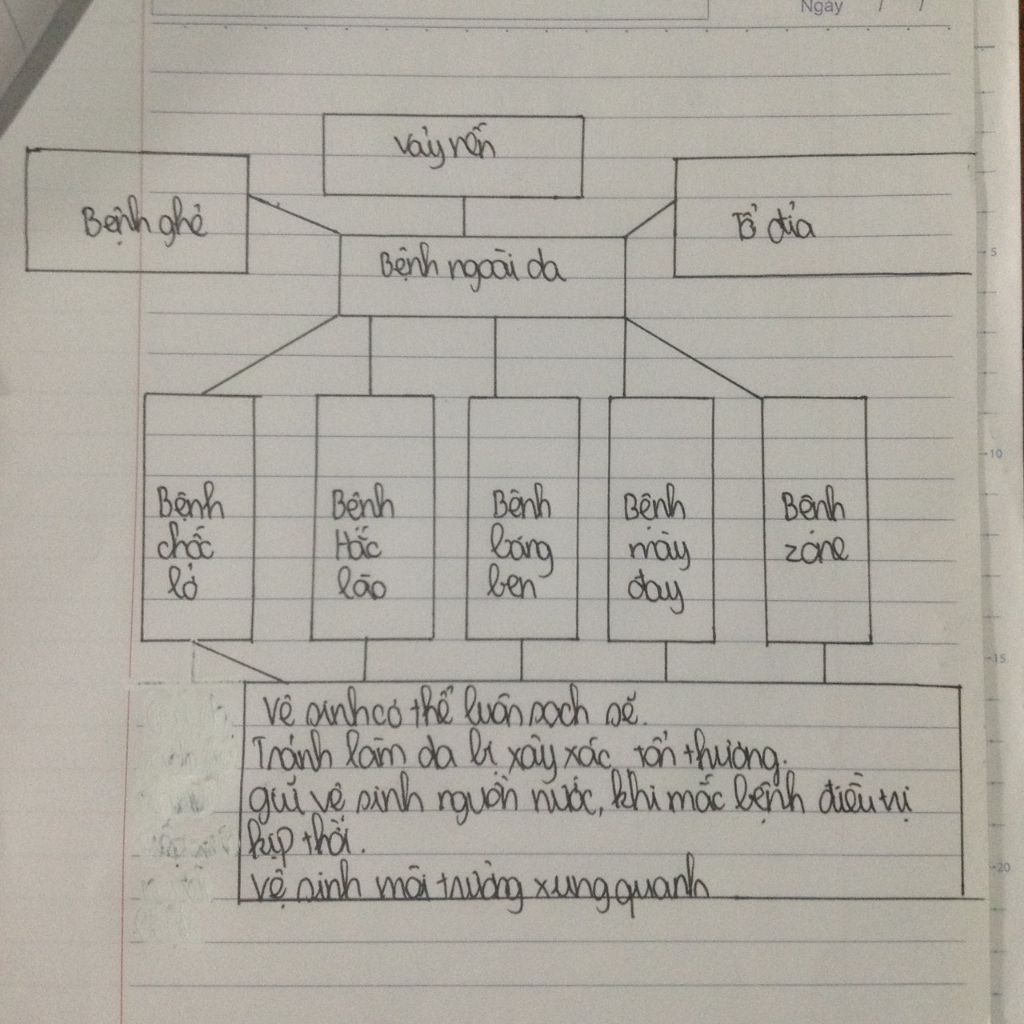 Ngày / /
vảy nến
Bệnh ghẻ
Tổ đỉa
Bệnh ngoài da
Bệnh
chốc
lở
Bệnh
Hắc
lào
Bệnh
lang
ben
Bệnh
mày
đay
Bệnh
zona
vệ sinh cơ thể luôn sạch sẽ.
Tránh làm da bị xây xác tổn thương.
giữ vệ sinh nguồn nước, khi mắc bệnh điều trị
kịp thời.
vệ sinh môi trường xung quanh
5
10
15
20